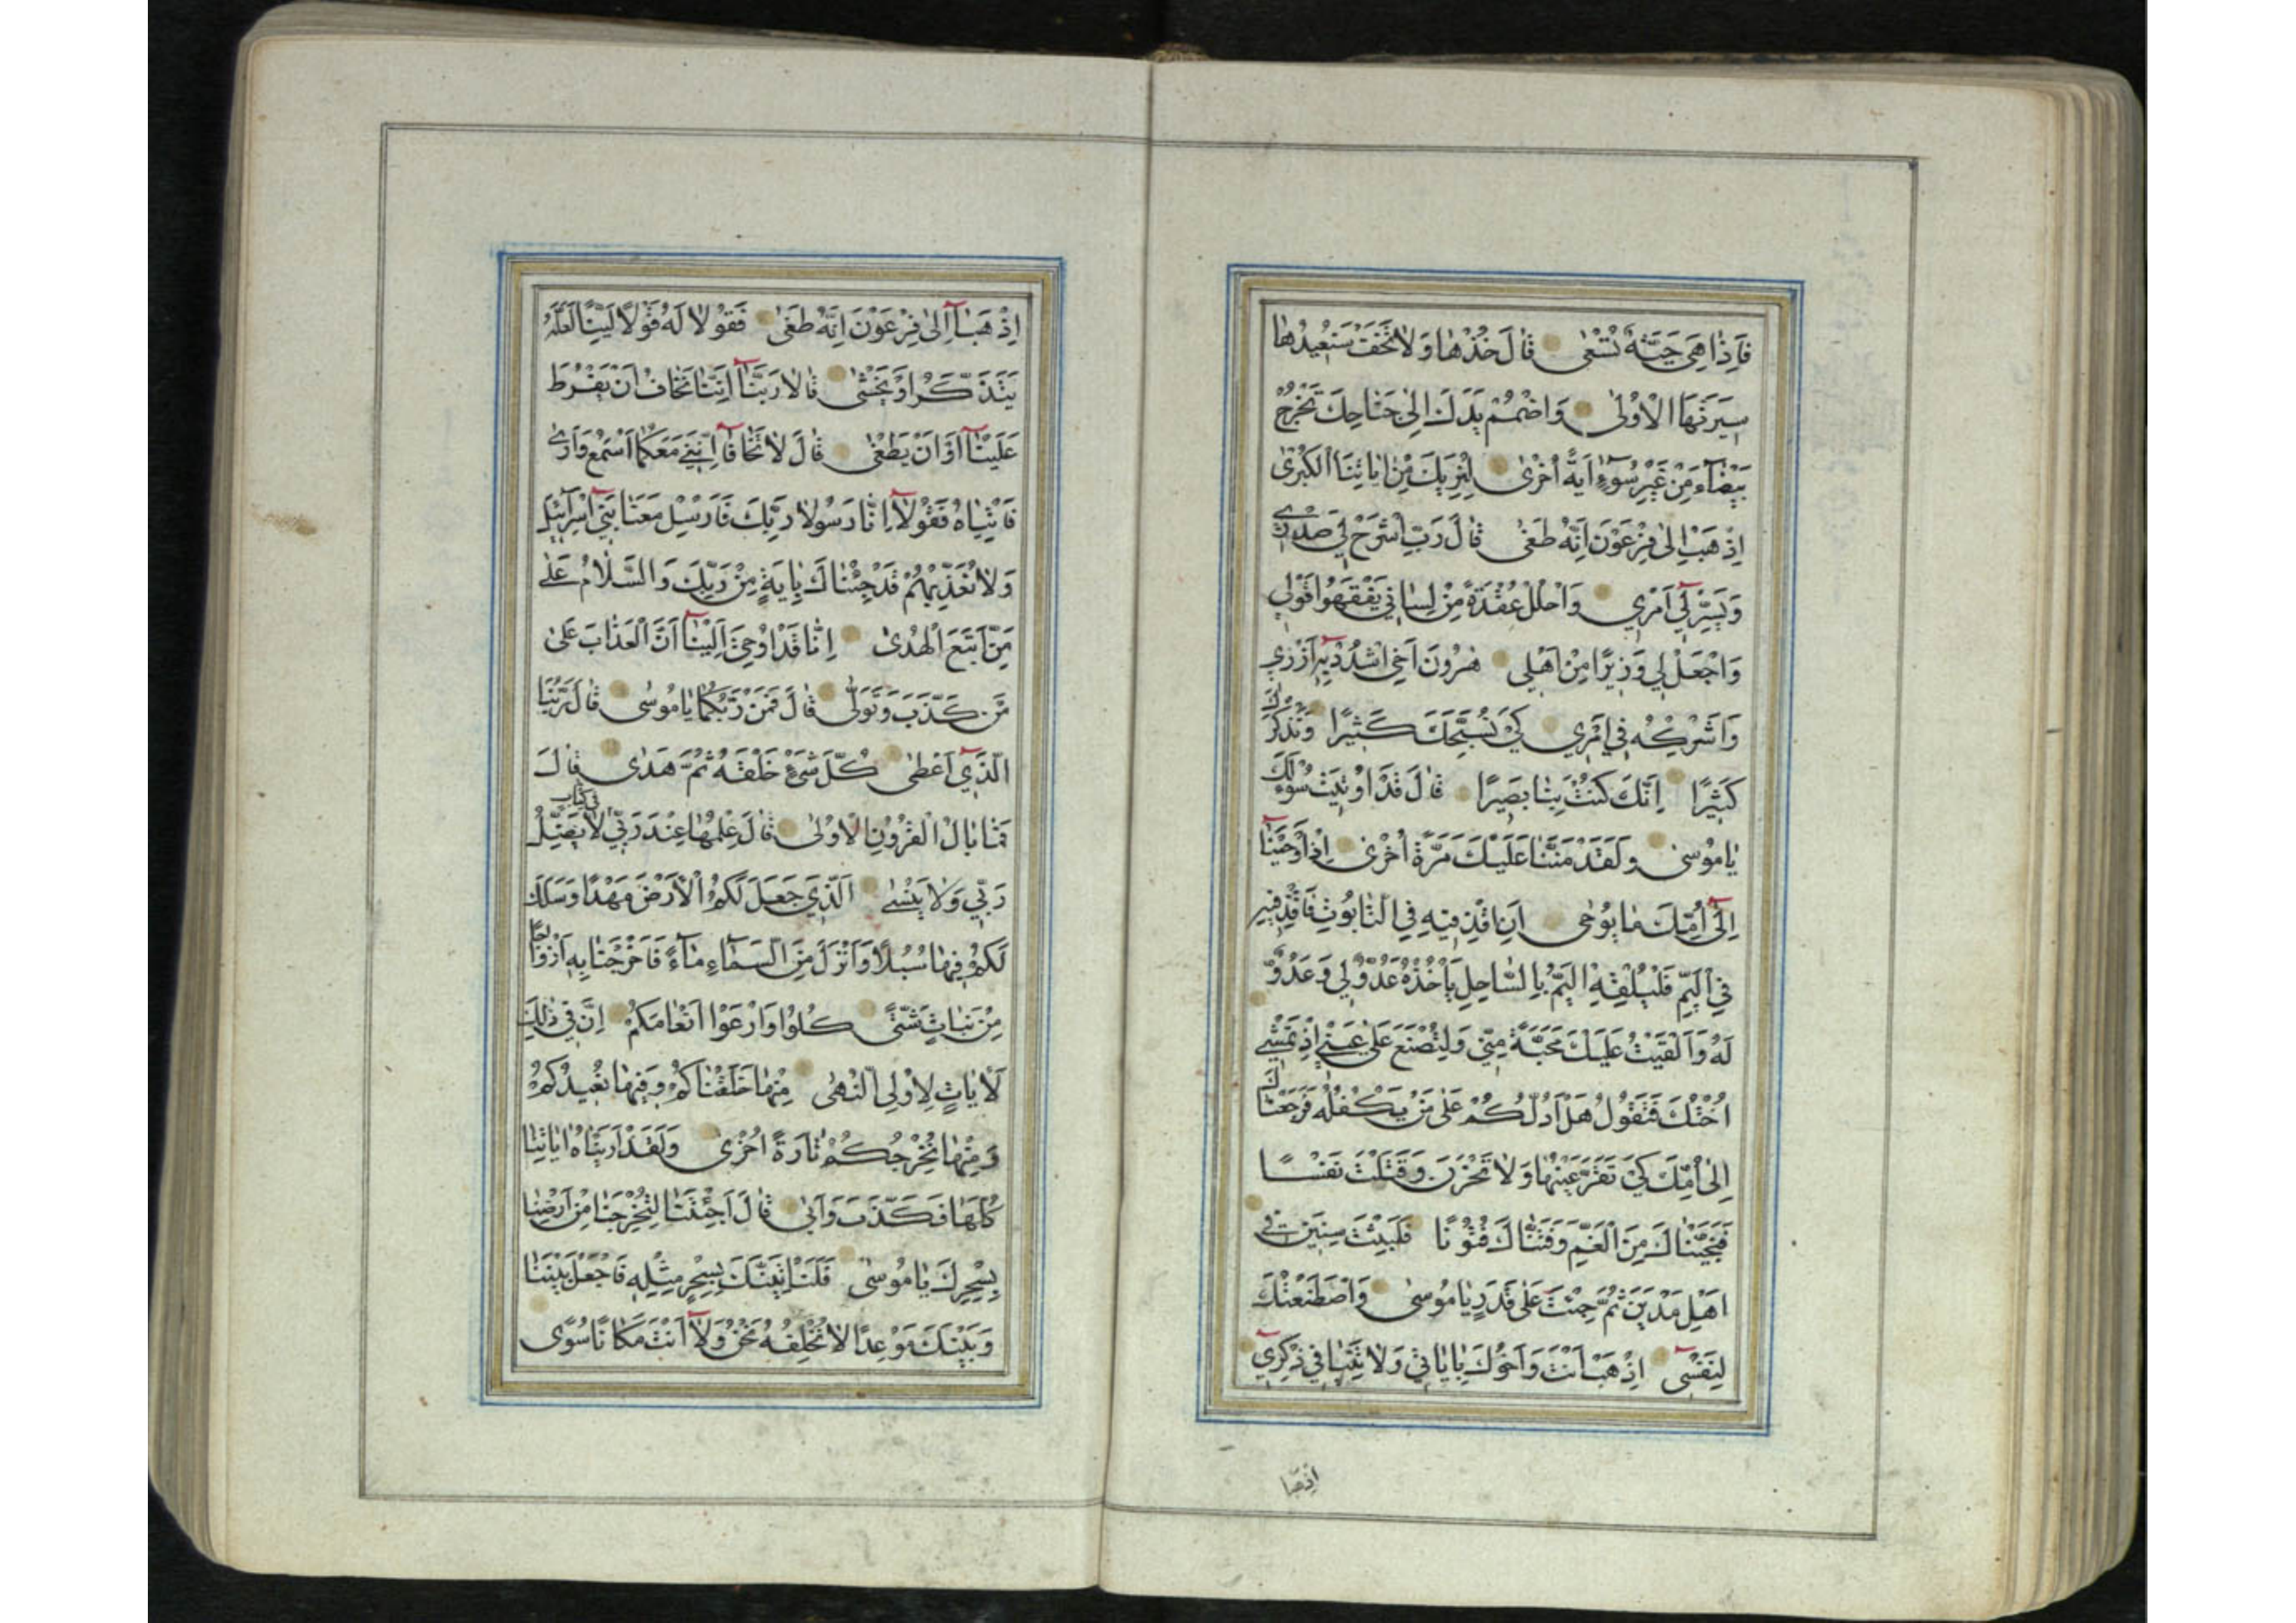 فَاِذَا هِيَ حَيَّةٌ تَسْعٰى قَالَ خُذْهَا وَلَا تَخَفْ سَنُعِيدُهَا
سِيرَتَهَا الْاُولٰى وَاضْمُمْ يَدَكَ اِلٰى جَنَاحِكَ تَخْرُجْ
بَيْضَٓاءَ مِنْ غَيْرِ سُوٓءٍ اٰيَةً اُخْرٰى لِنُرِيَكَ مِنْ اٰيَاتِنَا الْكُبْرٰى
اِذْهَبْ اِلٰى فِرْعَوْنَ اِنَّهُ طَغٰى قَالَ رَبِّ اشْرَحْ لِي صَدْرِي
وَيَسِّرْ لِٓي اَمْرِي وَاحْلُلْ عُقْدَةً مِنْ لِسَانِي يَفْقَهُوا قَوْلِي
وَاجْعَلْ لِي وَزِيرًا مِنْ اَهْلِي هٰرُونَ اَخِي اشْدُدْ بِهِٓ اَزْرِي
وَاَشْرِكْهُ فِي اَمْرِي كَيْ نُسَبِّحَكَ كَثِيرًا وَنَذْكُرَكَ
كَثِيرًا اِنَّكَ كُنْتَ بِنَا بَصِيرًا قَالَ قَدْ اُوتِيتَ سُؤْلَكَ
يَا مُوسٰى وَلَقَدْ مَنَنَّا عَلَيْكَ مَرَّةً اُخْرٰى اِذْ اَوْحَيْنَٓا
اِلٰٓى اُمِّكَ مَا يُوحٰى اَنِ اقْذِفِيهِ فِي التَّابُوتِ فَاقْذِفِيهِ
فِي الْيَمِّ فَلْيُلْقِهِ الْيَمُّ بِالسَّاحِلِ يَأْخُذْهُ عَدُوٌّ لِي وَعَدُوٌّ
لَهُ وَاَلْقَيْتُ عَلَيْكَ مَحَبَّةً مِنِّي وَلِتُصْنَعَ عَلٰى عَيْنِي اِذْ تَمْشِي
اُخْتُكَ فَتَقُولُ هَلْ اَدُلُّكُمْ عَلٰى مَنْ يَكْفُلُهُ فَرَجَعْنَاكَ
اِلٰى اُمِّكَ كَيْ تَقَرَّ عَيْنُهَا وَلَا تَحْزَنَ وَقَتَلْتَ نَفْسًا
فَنَجَّيْنَاكَ مِنَ الْغَمِّ وَفَتَنَّاكَ فُتُونًا فَلَبِثْتَ سِنِينَ فِي
اَهْلِ مَدْيَنَ ثُمَّ جِئْتَ عَلٰى قَدَرٍ يَا مُوسٰى وَاصْطَنَعْتُكَ
لِنَفْسِي اِذْهَبْ اَنْتَ وَاَخُوكَ بِاٰيَاتِي وَلَا تَنِيَا فِي ذِكْرِي
اِذْهَبَا
اِذْهَبَٓا اِلٰى فِرْعَوْنَ اِنَّهُ طَغٰى فَقُولَا لَهُ قَوْلًا لَيِّنًا لَعَلَّهُ
يَتَذَكَّرُ اَوْ يَخْشٰى قَالَا رَبَّنَٓا اِنَّنَا نَخَافُ اَنْ يَفْرُطَ
عَلَيْنَٓا اَوْ اَنْ يَطْغٰى قَالَ لَا تَخَافَٓا اِنَّنِي مَعَكُمَا اَسْمَعُ وَاَرٰى
فَأْتِيَاهُ فَقُولَٓا اِنَّا رَسُولَا رَبِّكَ فَاَرْسِلْ مَعَنَا بَنِٓي اِسْرَٓائِيلَ
وَلَا تُعَذِّبْهُمْ قَدْ جِئْنَاكَ بِاٰيَةٍ مِنْ رَبِّكَ وَالسَّلَامُ عَلٰى
مَنِ اتَّبَعَ الْهُدٰى اِنَّا قَدْ اُوحِيَ اِلَيْنَٓا اَنَّ الْعَذَابَ عَلٰى
مَنْ كَذَّبَ وَتَوَلّٰى قَالَ فَمَنْ رَبُّكُمَا يَا مُوسٰى قَالَ رَبُّنَا
الَّذِٓي اَعْطٰى كُلَّ شَيْءٍ خَلْقَهُ ثُمَّ هَدٰى قَالَ
فَمَا بَالُ الْقُرُونِ الْاُولٰى قَالَ عِلْمُهَا عِنْدَ رَبِّي فِي كِتَابٍ لَا يَضِلُّ
رَبِّي وَلَا يَنْسٰى اَلَّذِي جَعَلَ لَكُمُ الْاَرْضَ مَهْدًا وَسَلَكَ
لَكُمْ فِيهَا سُبُلًا وَاَنْزَلَ مِنَ السَّمَٓاءِ مَٓاءً فَاَخْرَجْنَا بِهِٓ اَزْوَاجًا
مِنْ نَبَاتٍ شَتّٰى كُلُوا وَارْعَوْا اَنْعَامَكُمْ اِنَّ فِي ذٰلِكَ
لَاٰيَاتٍ لِاُولِي النُّهٰى مِنْهَا خَلَقْنَاكُمْ وَفِيهَا نُعِيدُكُمْ
وَمِنْهَا نُخْرِجُكُمْ تَارَةً اُخْرٰى وَلَقَدْ اَرَيْنَاهُ اٰيَاتِنَا
كُلَّهَا فَكَذَّبَ وَاَبٰى قَالَ اَجِئْتَنَا لِتُخْرِجَنَا مِنْ اَرْضِنَا
بِسِحْرِكَ يَا مُوسٰى فَلَنَأْتِيَنَّكَ بِسِحْرٍ مِثْلِهِ فَاجْعَلْ بَيْنَنَا
وَبَيْنَكَ مَوْعِدًا لَا نُخْلِفُهُ نَحْنُ وَلَٓا اَنْتَ مَكَانًا سُوًى